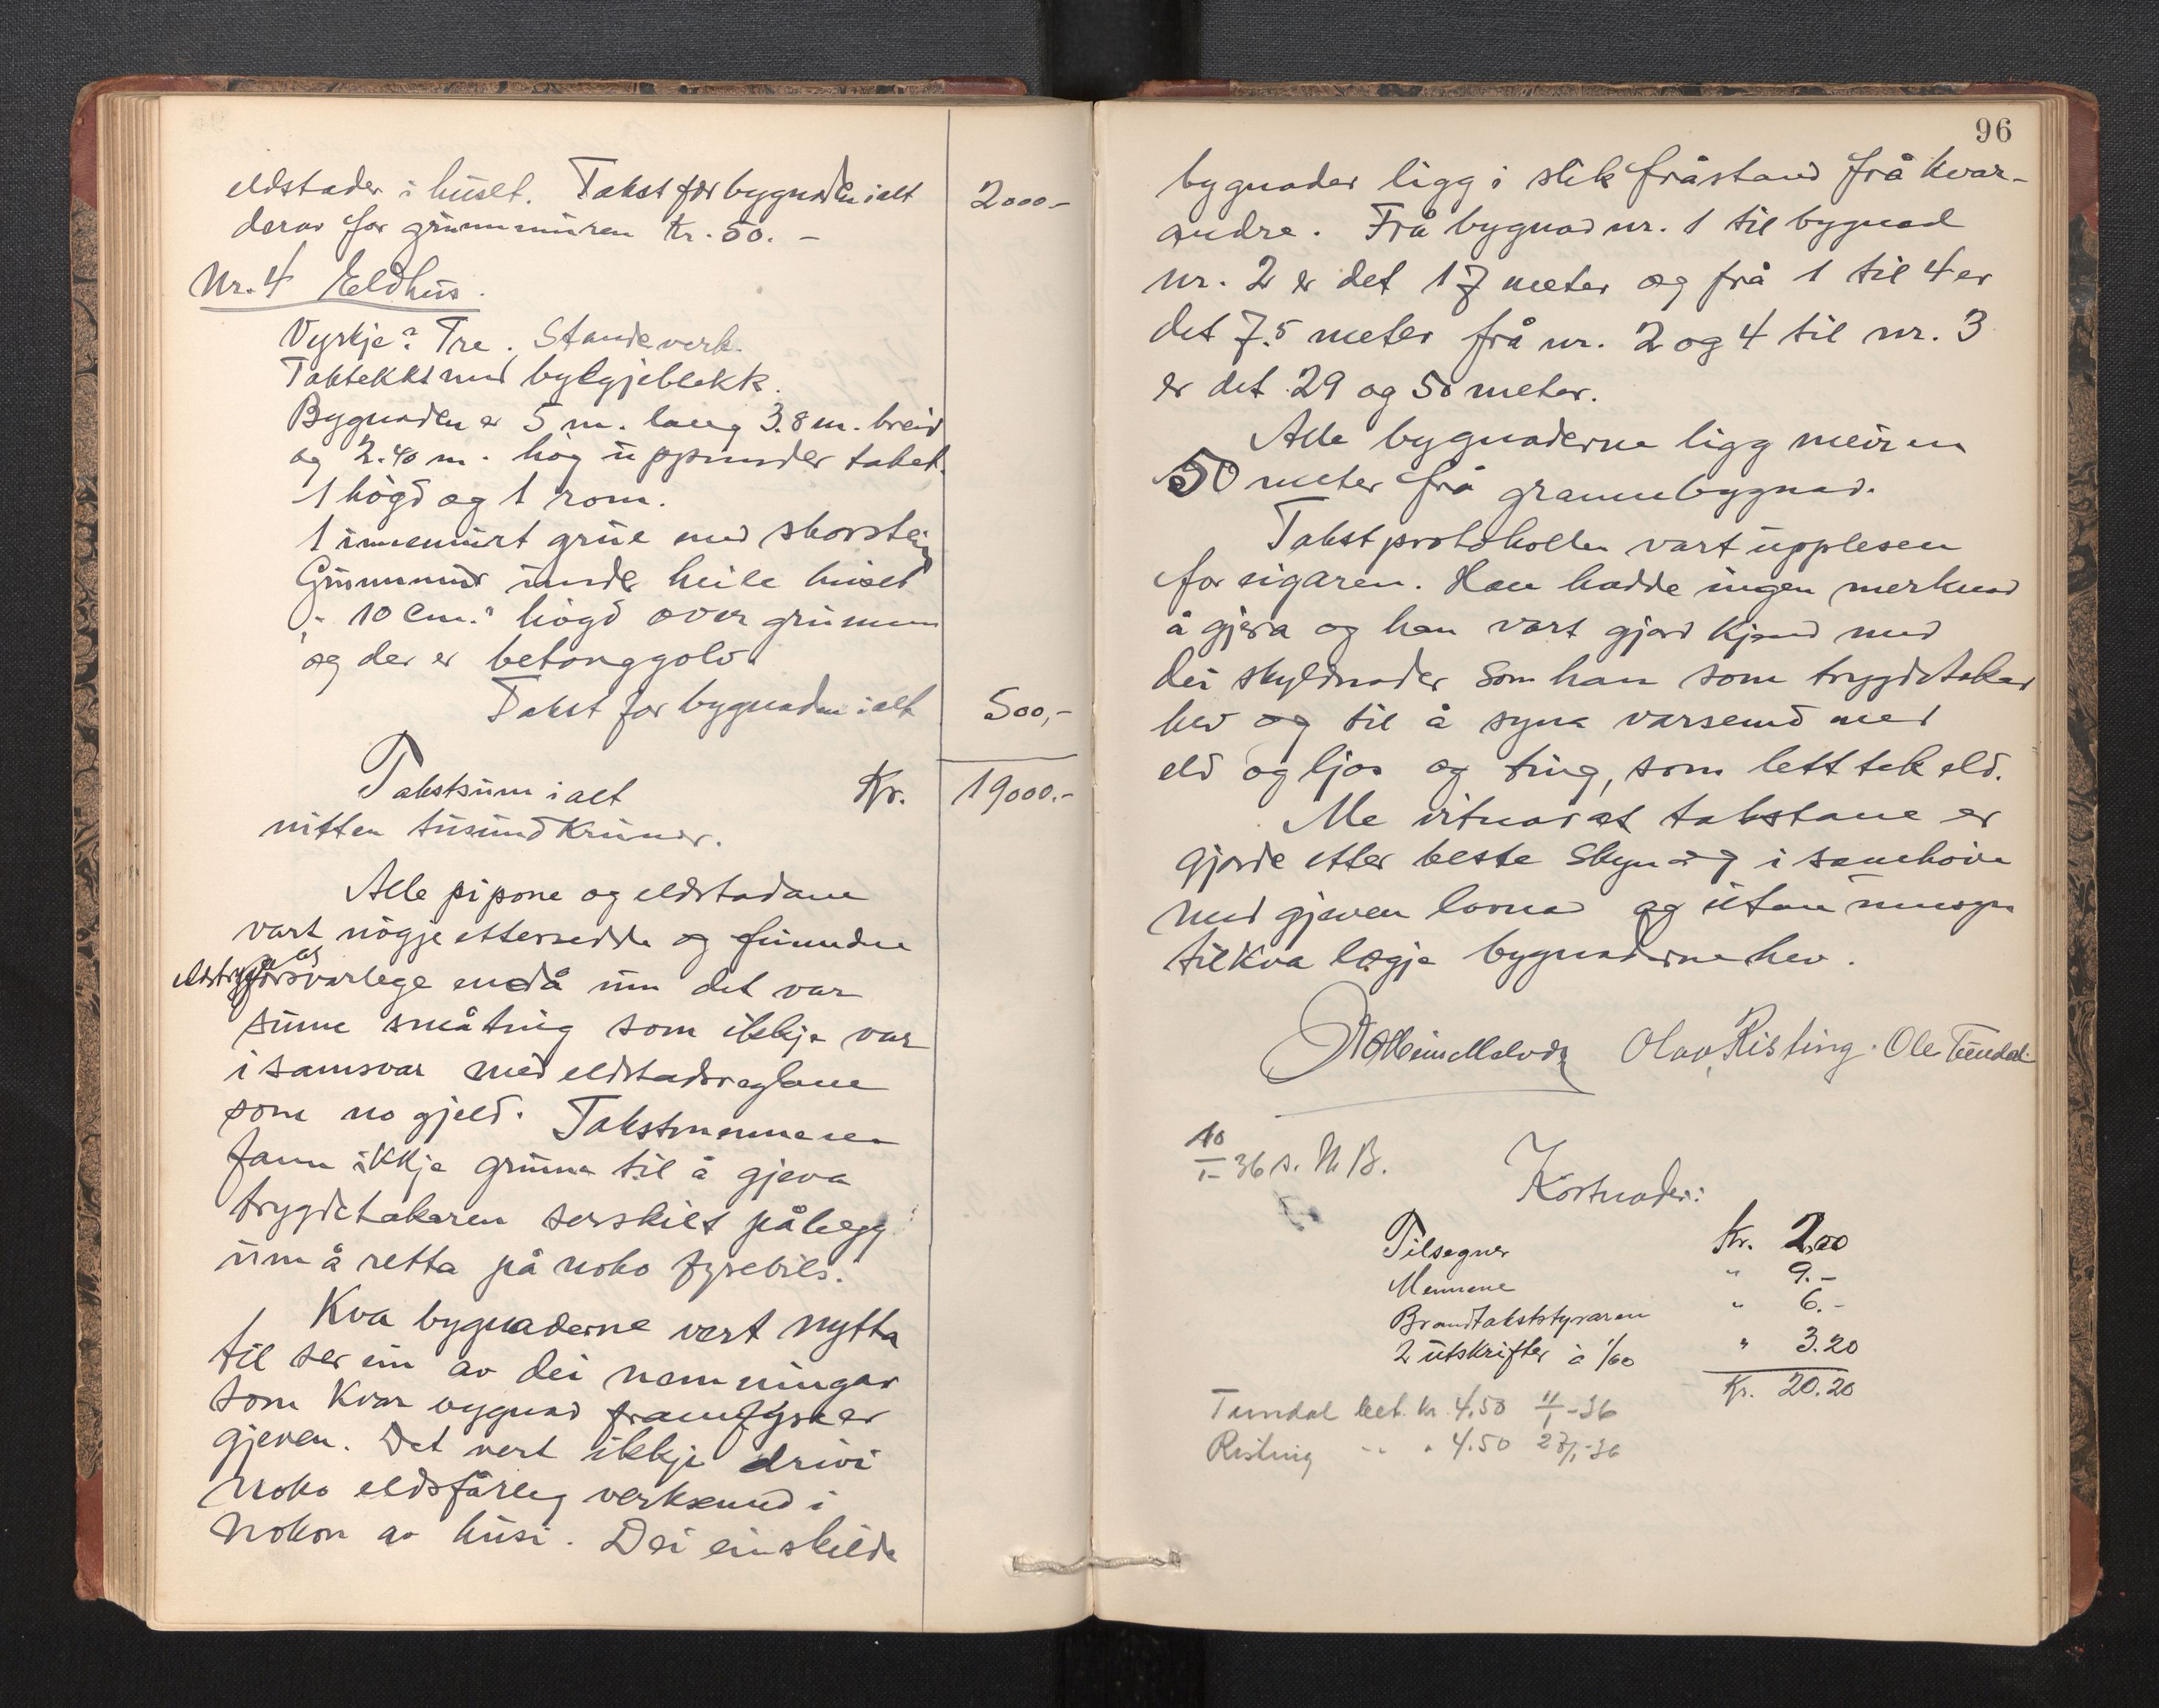 eldstader i huset. Takst for bygnaden ialt 2000.-
derav for grunnmuren kr. 50. -
Nr. 4 Eldhus.
Vyrkje: Tre. Standeverk.
Taktekt med bylgjeblekk.
Bygnaden er 5 m. lang 3.8 m. breid
og 2.40 m. høg uppunder taket.
1 høgd og 1 rom.
1 innemurt grue med skorstein
Grunnmur under heile huset
10 cm. høgd over grunnen
og der er betonggolv.
Takst for bygnaden ialt 500,-
Takstsum ialt Kr. 19000.-
nitten tusund kruner.
Alle pipone og eldstadane
vart nøgje ettersedde og funndne
eldtrygge og
forsvarlege endå um det var
sume småting som ikkje var
i samsvar med eldstadsreglane
som no gjeld. Takstmennene
fann ikkje grunn til å gjeva
trygdetakaren serskilt pålegg
um å retta på noko fyrebils.
Kva bygnaderne vert nytta
til ser ein av dei nemningar
som kvar bygnad framfyre er
gjeven. Det vert ikkje drivi
noko eldsfårleg verksemd i
nokon av husi. Dei einskilde
96
bygnader ligg i slik fråstand frå kvar-
andre. Frå bygnad nr. 1 til bygnad
nr. 2 er det 17 meter og frå 1 til 4 er
det 7.5 meter frå nr. 2 og 4 til nr. 3
er det 29 og 50 meter.
Alle bygnaderne ligg meir en
50 meter frå grannebygnad.
Takstprotokollen vart upplesen
for eigaren. Han hadde ingen merknad
å gjera og han vart gjord kjend med
dei skyldnader som han som trygdetakar
hev og til å syna varsemd med
eld og ljos og ting, som lett tek eld.
Me vitnar at takstane er
gjorde etter beste skyn og i samhøve
med gjeven lovnad og utan umsyn
til kva lægje bygnaderne hev.
Olav Risting. Ole Tundal.
10/1-36 s. N. B.
Kostnader:
Tilsegner kr. 2,00
Mennene " 9.-
Brandtakststyraren " 6.-
2 utskrifter à 1/60 " 3.20
Kr. 20.20
Tundal bet. kr. 4.50 11/1-36
Risting " " 4.50 27/1-36